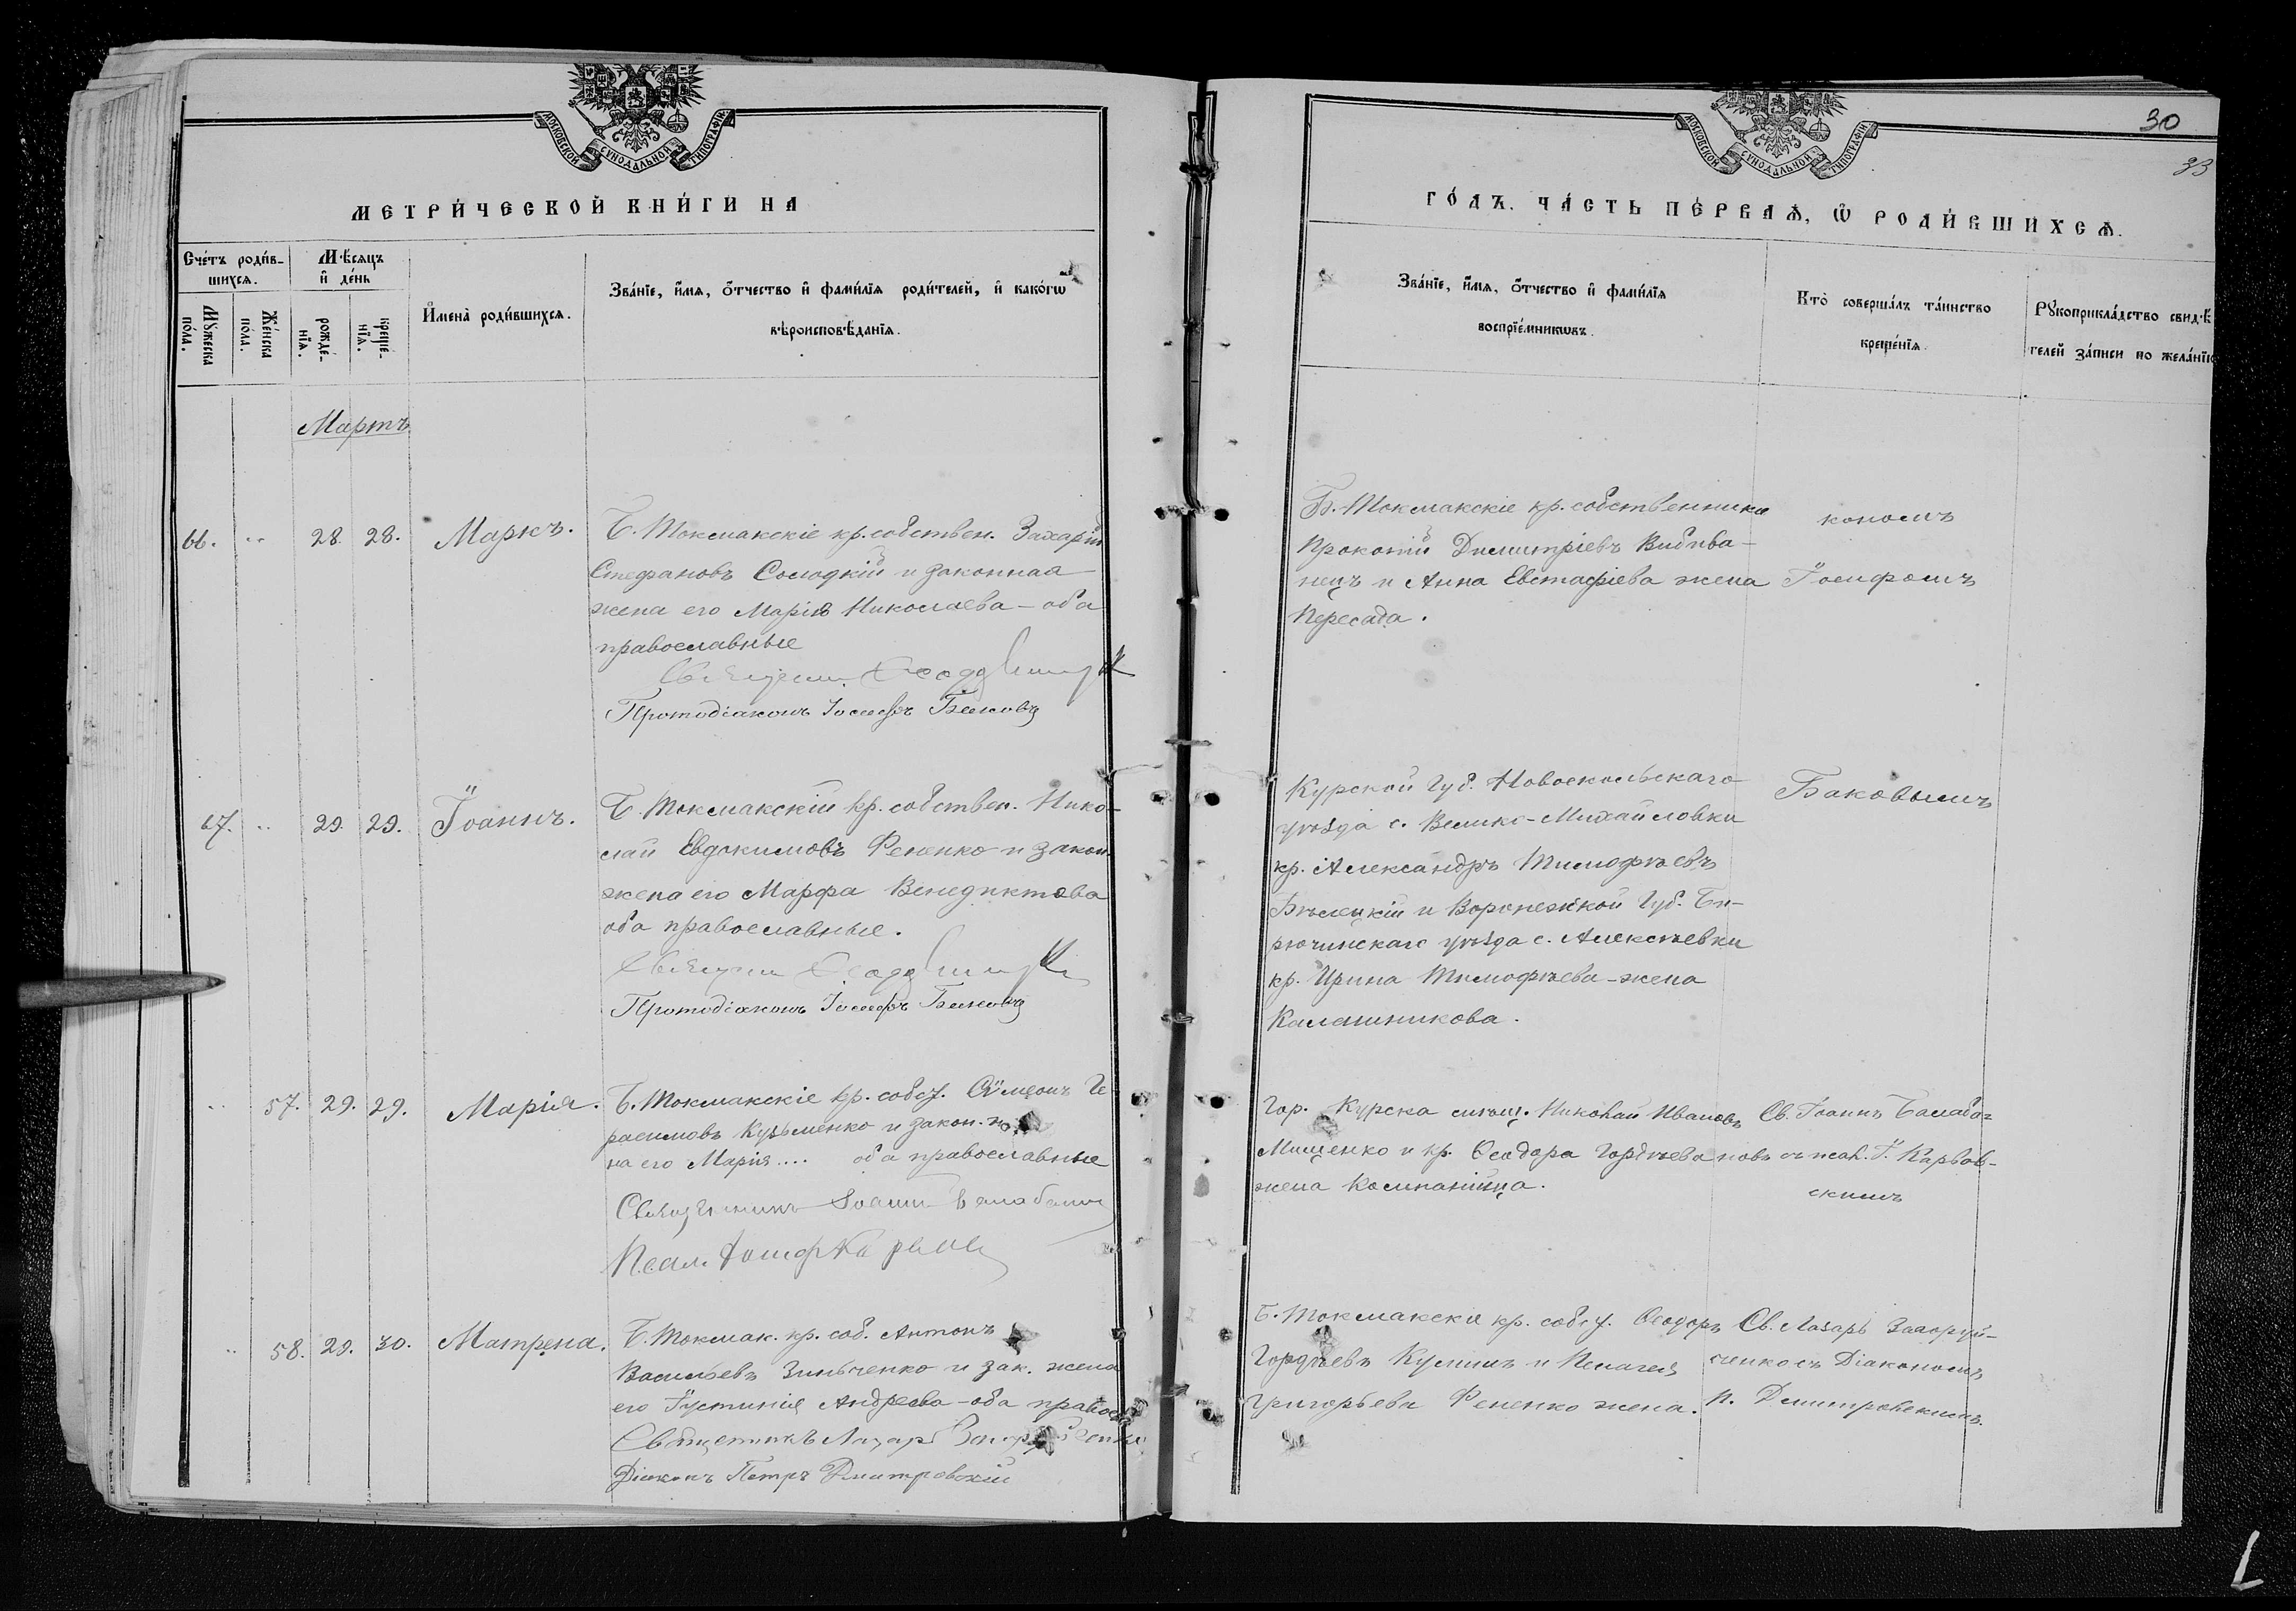 МОСКОВСКОЙ СУНОДАЛЬНОЙ ТИПОГРАФІИ
МЕТРИ́ЧЕСКОЙ КНИ́ГИ НА
Сче́тъ роди́в-
шихсѧ.
Мѣ́сѧцъ
и҆ де́нь
Мꙋ́жеска
по́ла.
Же́нска
по́ла.
рожде́-
нїѧ.
креще́-
нїѧ.
И҆мена̀ роди́вшихсѧ.
Зва́нїе, и҆́мѧ, ѻ҆́тчество и҆ фами́лїѧ роди́телей, и҆ како́гѡ
вѣроисповѣ́данїѧ.
Мартъ
66. " 28. 28. Маркъ.
Б. Токмакскіе кр. собствен. Захарій
Стефановъ Солодкій и законная
жена его Марія Николаева – оба
православные
Протодіаконъ Іосифъ Баковъ
67. " 29. 29. Іоаннъ.
Б. Токмакскій кр. собствен. Нико-
лай Евдокимовъ Фененко и закон.
жена его Марфа Венедиктова
оба православные.
Протодіаконъ Іосифъ Баковъ
" 57. 29. 29. Марія.
Б. Токмакскіе кр. собст. Сѵмеонъ Ге-
расимовъ Кузьменко и закон. же
на его Марія.... оба православные
Священникъ Іоаннъ Балабанов
Псал. Іосиф Карвов
" 58. 29. 30. Матрена.
Б. Токмак. кр. соб. Антонъ
Васильевъ Зинченко и зак. жена
его Іустинія Андреева – оба правос
Священникъ Лазарь Запоройченко
Діаконъ Петръ Дмитровскій
МОСКОВСКОЙ СУНОДАЛЬНОЙ ТИПОГРАФІИ
30
33
ГО́ДЪ. ЧА́СТЬ ПЕ́РВАѦ, Ѡ҆ РОДИ́ВШИХСѦ.
Зва́нїе, и҆́мѧ, ѻ҆́тчество и҆ фами́лїѧ
воспрїе́мникѡвъ.
Кто̀ соверша́лъ та́инство
креще́нїѧ.
Рꙋкоприкла́дство свидѣ́
телей за́писи по жела́нїю
Б. Токмакскіе кр. собственники
Прокопій Димитріевъ Видива-
нецъ и Анна Евстафіева жена
Пересада.
кономъ
Іосифомъ
Курской Губ. Новооскольскаго
уѣзда с. Велико-Михайловки
кр. Александръ Тимофѣевъ
Бѣлецкій и Воронежской Губ. Би-
рючинскаго уѣзда с. Алексѣевки
кр. Ирина Тимофѣева – жена
Калашникова.
Баковымъ
Гор. Курска мѣщ. Николай Ивановъ
Мищенко и кр. Ѳеодора Гордѣева
жена Компанійца.
Св. Іоаннъ Балаба-
новъ съ псал. І. Карвов-
скимъ
Б. Токмакскіе кр. собст. Ѳеодоръ
Гордѣевъ Кулишъ и Пелагея
Григорьева Фененко жена.
Св. Лазарь Запоруй-
ченко съ Діакономъ
П. Дмитровскимъ.